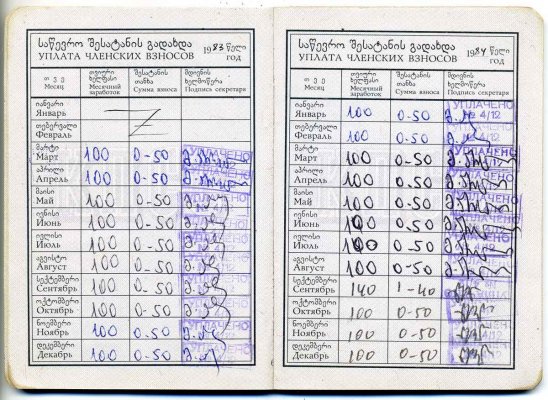 საწევრო შესატანის გადახდა
УПЛАТА ЧЛЕНСКИХ ВЗНОСОВ
1983 წელი
год
თვე
Месяц
თვიური ხელფასი
Месячный заработок
შესატანის თანხა
Сумма взноса
მდივნის ხელმოწერა
Подпись секретаря
იანვარი
Январь
თებერვალი
Февраль
მარტი
Март 100 0-50 УПЛАЧЕНО
აპრილი
Апрель 100 0-50
მაისი
Май 100 0-50
ივნისი
Июнь 100 0-50
ივლისი
Июль 100 0-50
აგვისტო
Август 100 0-50
სექტემბერი
Сентябрь 100 0-50
ოქტომბერი
Октябрь 100 0-50
ნოემბერი
Ноябрь 100 0-50
დეკემბერი
Декабрь 100 0-50
საწევრო შესატანის გადახდა
УПЛАТА ЧЛЕНСКИХ ВЗНОСОВ
1984 წელი
год
თვე
Месяц
თვიური ხელფასი
Месячный заработок
შესატანის თანხა
Сумма взноса
მდივნის ხელმოწერა
Подпись секретаря
იანვარი УПЛАЧЕНО
Январь 100 0-50 4/12
თებერვალი
Февраль 100 0-50
მარტი
Март 100 0-50
აპრილი
Апрель 100 0-50
მაისი
Май 100 0-50
ივნისი
Июнь 100 0-50
ივლისი
Июль 100 0-50
აგვისტო
Август 100 0-50
სექტემბერი
Сентябрь 140 1-40
ოქტომბერი
Октябрь 100 0-50
ნოემბერი
Ноябрь 100 0-50
დეკემბერი
Декабрь 100 0-50